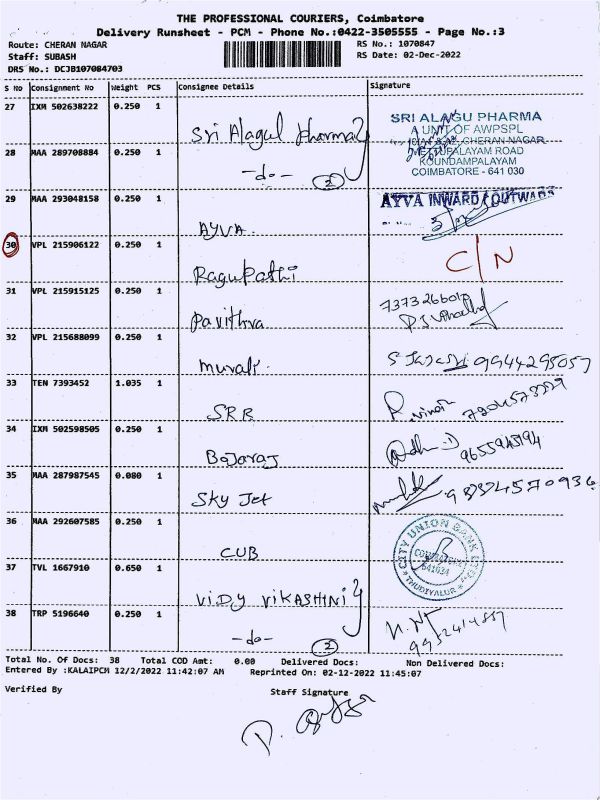 THE PROFESSIONAL COURIERS, Coimbatore
Delivery Runsheet - PCM - Phone No.:0422-3505555 - Page No.:3
Route: CHERAN NAGAR
Staff: SUBASH
DRS No.: DCJB107084703
RS No.: 1070847
RS Date: 02-Dec-2022
S No Consignment No Weight PCS Consignee Details Signature
27 IXM 502638222 0.250 1
Sri Alagul pharma
SRI ALAGU PHARMA
A UNIT OF AWPSPL
CHERAN NAGAR
METTUPALAYAM ROAD
KOUNDAMPALAYAM
COIMBATORE - 641 030
28 MAA 289708884 0.250 1
-do- 2
29 MAA 293048158 0.250 1
AYVA. AYVA INWARD / OUTWARD
30 VPL 215906122 0.250 1
Ragupathi C/N
31 VPL 215915125 0.250 1
Pavithra
32 VPL 215688099 0.250 1
Murali. 9944295057
33 TEN 7393452 1.035 1
SRR
34 IXM 502598505 0.250 1
Bojaraj
35 MAA 287987545 0.080 1
Sky Jet
36 MAA 292607585 0.250 1
CUB
CITY UNION BANK LTD.
641034
THUDIYALUR
37 TVL 1667910 0.650 1
VIDY VIKASHINI
38 TRP 5196640 0.250 1
-do- 2
Total No. Of Docs: 38 Total COD Amt: 0.00 Delivered Docs: Non Delivered Docs:
Entered By :KALAIPCM 12/2/2022 11:42:07 AM Reprinted On: 02-12-2022 11:45:07
Verified By Staff Signature